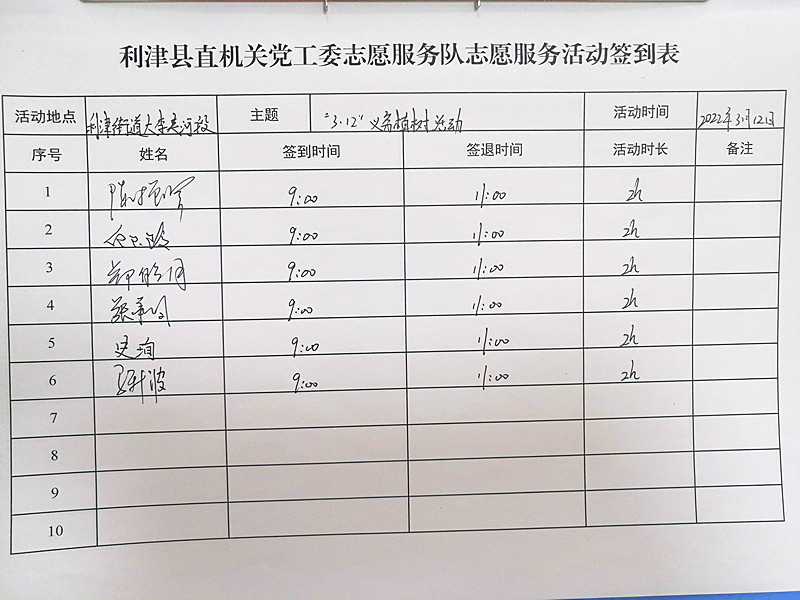 利津县直机关党工委志愿服务队志愿服务活动签到表
活动地点 利津街道大李夹河段 主题 "3·12"义务植树活动 活动时间 2022年3月12日
序号 姓名 签到时间 签退时间 活动时长 备注
1 9:00 11:00 2h
2 9:00 11:00 2h
3 9:00 11:00 2h
4 9:00 11:00 2h
5 史海 9:00 11:00 2h
6 9:00 11:00 2h
7
8
9
10